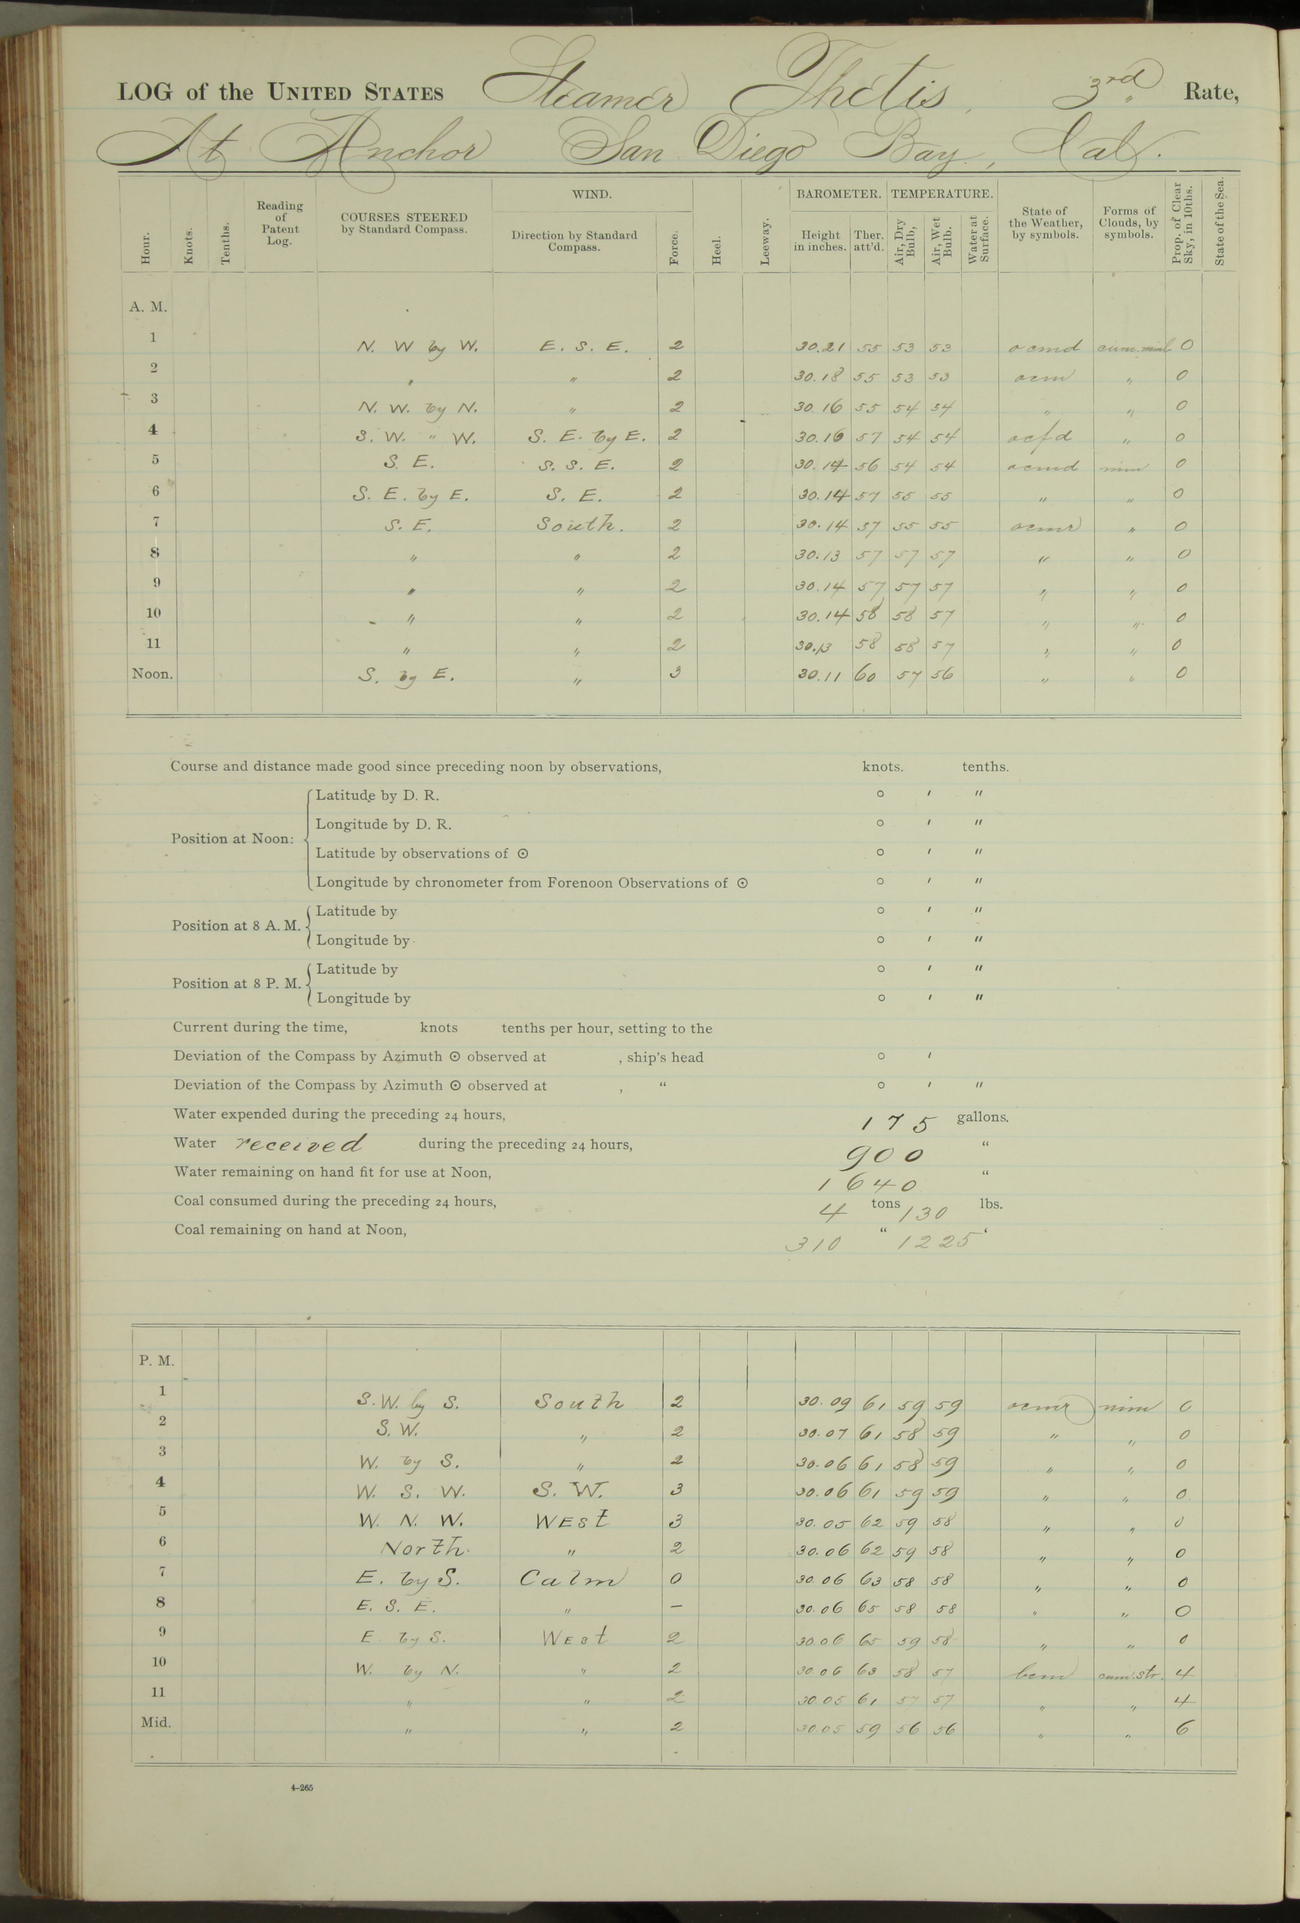 LOG of the UNITED STATES Steamer Thetis, 3rd Rate,
At Anchor San Diego Bay, Cal.
Hour. Knots. Tenths. Reading of Patent Log. COURSES STEERED by Standard Compass. WIND. Direction by Standard Compass. Force. Heel. Leeway. BAROMETER. Height in inches. Ther. att'd. TEMPERATURE. Air, Dry Bulb, Air, Wet Bulb. Water at Surface. State of the Weather, by symbols. Forms of Clouds, by symbols. Prop. of Clear Sky, in 10ths. State of the Sea.
A. M.
1 N. W by W. E. S. E. 2 30.21 55 53 53 ocmd cum. nim 0
2 " " 2 30.18 55 53 53 ocm " 0
3 N. W. by N. " 2 30.16 55 54 54 " " 0
4 S. W. " W. S. E. by E. 2 30.16 57 54 54 ocfd " 0
5 S. E. S. S. E. 2 30.14 56 54 54 ocmd nim 0
6 S. E. by E. S. E. 2 30.14 57 55 55 " " 0
7 S. E. South. 2 30.14 57 55 55 ocmr " 0
8 " " 2 30.13 57 57 57 " " 0
9 " " 2 30.14 57 57 57 " " 0
10 " " 2 30.14 58 58 57 " " 0
11 " " 2 30.13 58 58 57 " " 0
Noon. S. by E. " 3 30.11 60 57 56 " " 0
Course and distance made good since preceding noon by observations, knots. tenths.
Position at Noon: Latitude by D. R. ° ′ ″
Longitude by D. R. ° ′ ″
Latitude by observations of ☉ ° ′ ″
Longitude by chronometer from Forenoon Observations of ☉ ° ′ ″
Position at 8 A. M. Latitude by ° ′ ″
Longitude by ° ′ ″
Position at 8 P. M. Latitude by ° ′ ″
Longitude by ° ′ ″
Current during the time, knots tenths per hour, setting to the
Deviation of the Compass by Azimuth ☉ observed at , ship's head ° ′
Deviation of the Compass by Azimuth ☉ observed at , " ° ′ ″
Water expended during the preceding 24 hours, 175 gallons.
Water received during the preceding 24 hours, 900 "
Water remaining on hand fit for use at Noon, 1640 "
Coal consumed during the preceding 24 hours, 4 tons 130 lbs.
Coal remaining on hand at Noon, 310 " 1225 "
P. M.
1 S. W. by S. South 2 30.09 61 59 59 ocmr nim 0
2 S. W. " 2 30.07 61 58 59 " " 0
3 W. by S. " 2 30.06 61 58 59 " " 0
4 W. S. W. S. W. 3 30.06 61 59 59 " " 0
5 W. N. W. West 3 30.05 62 59 58 " " 0
6 North. " 2 30.06 62 59 58 " " 0
7 E. by S. Calm 0 30.06 63 58 58 " " 0
8 E. S. E. " — 30.06 65 58 58 " " 0
9 E. by S. West 2 30.06 65 59 58 " " 0
10 W. by N. " 2 30.06 63 58 57 bcm cum. str. 4
11 " " 2 30.05 61 57 57 " " 4
Mid. " " 2 30.05 59 56 56 " " 6
4-265